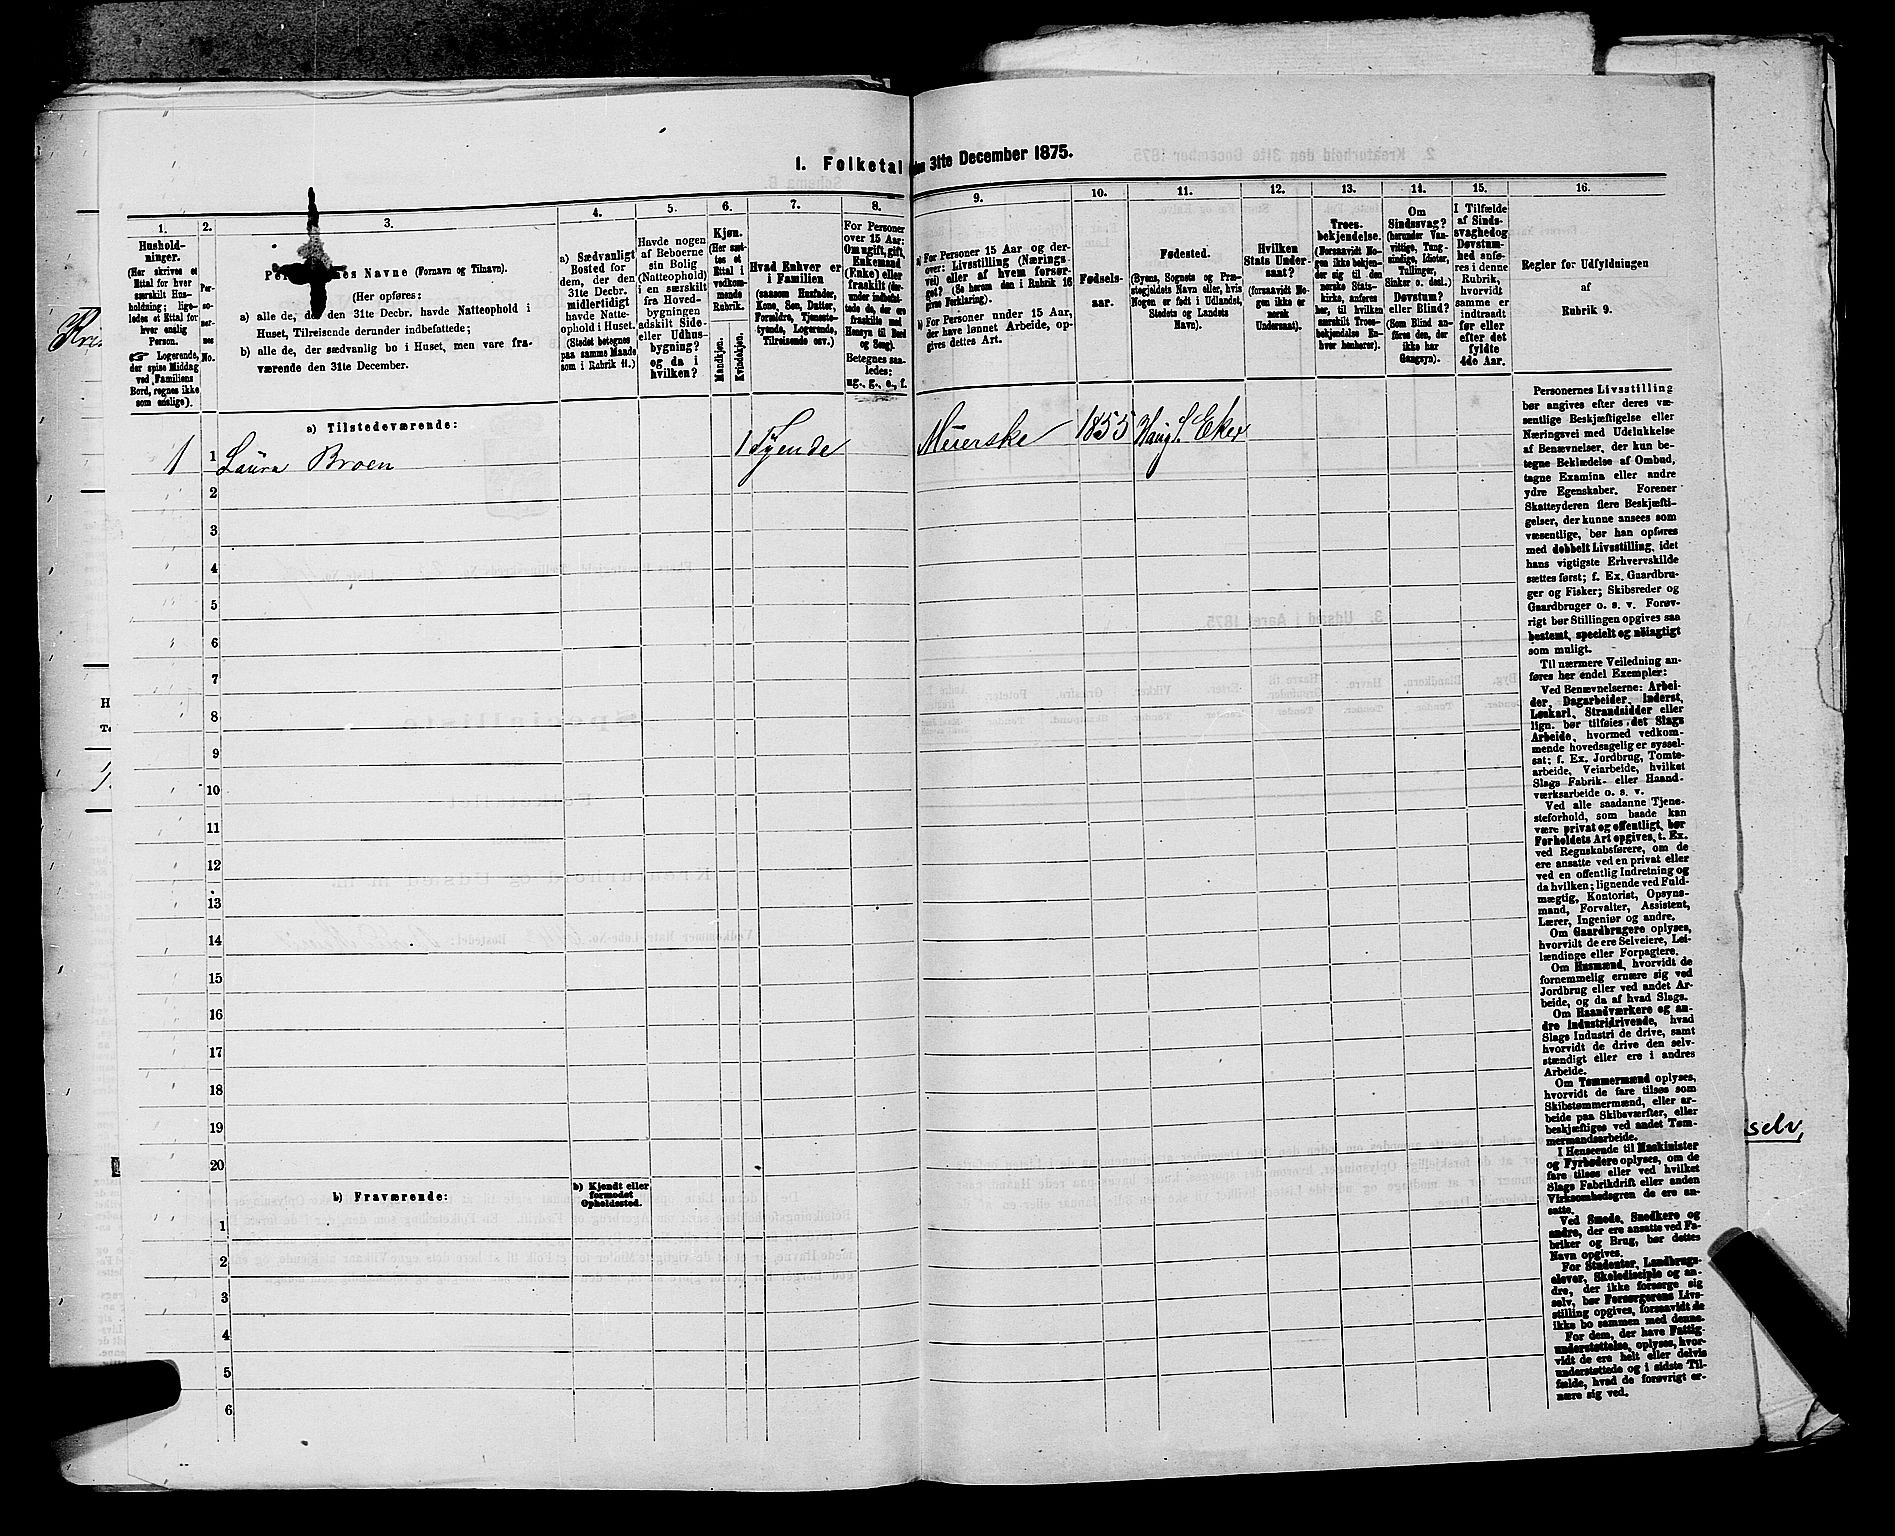 1. Folketal den 31te December 1875.
1.
2.
3.
4.
5.
6.
7.
8.
9.
10.
11.
12.
13.
14.
15.
16.
Hushold-
ninger.
(Her skrives et
Ettal for hver
særskilt Hus-
holdning; lige-
ledes et Ettal for
hver enslig
Person.
☞ Logerende,
der spise Middag
ved Familiens
Bord, regnes ikke
som enslige).
Per-
so-
ner-
nes
No.
Navne (Fornavn og Tilnavn).
(Her opføres:
a) alle de, der den 31te Decbr. havde Natteophold i
Huset, Tilreisende derunder indbefattede;
b) alle de, der sædvanlig bo i Huset, men vare fra-
værende den 31te December.
a) Sædvanligt
Bosted for
dem, der den
31te Decbr.
midlertidigt
havde Natte-
ophold i Huset.
(Stedet betegnes
paa samme Maade
som i Rubrik 11.)
Havde nogen
af Beboerne
sin Bolig
(Natteophold)
i en særskilt
fra Hoved-
bygningen
adskilt Side-
eller Udhus-
bygning?
og da i
hvilken?
Kjøn.
(Her sæt-
tes et
Ettal i
vedkom-
mende
Rubrik.
Mandkjøn.
Kvindekjøn.
Hvad Enhver er
i Familien
(saasom Husfader,
Kone, Søn, Datter,
Forældre, Tjeneste-
tyende, Logerende,
Tilreisende osv.)
For Personer
over 15 Aar:
Om ugift, gift,
Enkemand
(Enke) eller
fraskilt
Betegnes saa-
ledes:
ug., g., e., f.
a) For Personer 15 Aar og der-
over: Livsstilling (Nærings-
vei) eller af hvem forsør-
get? (Se herom den i Rubrik 16
givne Forklaring).
b) For Personer under 15 Aar,
der have lønnet Arbeide, op-
gives dettes Art.
Fødsels-
aar.
Fødested.
(Byens, Sognets og Præ-
stegjeldets Navn eller, hvis
Nogen er født i Udlandet,
Stedets og Landets
Navn).
Hvilken
Stats Under-
saat?
(forsaavidt No-
gen ikke er
norsk
Undersaat).
Troes-
bekjendelse.
(Forsaavidt No-
gen ikke bekjen-
der sig til den
norske Stats-
kirke, anføres
her, til hvilken
særskilt Troes-
bekjendelse En-
hver henhører).
Om
Sindssvag?
(herunder Van-
vittige, Tung-
sindige, Idioter,
Tullinger,
Sinker o. desl.)
Døvstum?
eller Blind?
(Som Blind an-
føres den, der
ikke har
Gangsyn).
I Tilfælde
af Sinds-
svaghed og
Døvstum-
hed anfø-
res i denne
Rubrik,
hvorvidt
samme er
indtraadt
før eller
efter det
fyldte
4de Aar.
Regler for Udfyldningen
af
Rubrik 9.
a) Tilstedeværende:
1 1 Laura Broen 1 Tyende Meierske 1855 Haug S. Eker
2
3
4
5
6
7
8
9
10
11
12
13
14
15
16
17
18
19
20
b) Fraværende:
b) Kjendt eller
formodet
Opholdssted.
1
2
3
4
5
6
Personernes Livsstilling
bør angives efter deres væ-
sentlige Beskjæftigelse eller
Næringsvei med Udelukkelse
af Benævnelser, der kun be-
tegne Beklædelse af Ombud,
tagne Examina eller andre
ydre Egenskaber. Forener
Skatteyderen flere Beskjæfti-
gelser, der kunne ansees som
væsentlige, bør han opføres
med dobbelt Livsstilling, idet
hans vigtigste Erhvervskilde
sættes først; f. Ex. Gaardbru-
ger og Fisker; Skibsreder og
Gaardbruger o. s. v. Forøv-
rigt bør Stillingen opgives saa
bestemt, specielt og nøiagtigt
som muligt.
Til nærmere Veiledning an-
føres her endel Exempler:
Ved Benævnelserne: Arbei-
der, Dagarbeider, Inderst,
Løskarl, Strandsidder eller
lign. bør tilføies det Slags
Arbeide, hvormed vedkom-
mende hovedsagelig er syssel-
sat; f. Ex. Jordbrug, Tomte-
arbeide, Veiarbeide, hvilket
Slags Fabrik- eller Haand-
værksarbeide o. s. v.
Ved alle saadanne Tjene-
steforhold, som baade kan
være privat og offentligt, bør
Forholdets Art opgives, t. Ex.
ved Regnskabsførere, om de
ere ansatte ved en privat eller
ved en offentlig Indretning og
da hvilken; lignende ved Fuld-
mægtig, Kontorist, Opsyns-
mand, Forvalter, Assistent,
Lærer, Ingeniør og andre.
Om Gaardbrugere oplyses,
hvorvidt de ere Selveiere, Lei-
lændinge eller Forpagtere.
Om Husmænd, hvorvidt de
fornemmelig ernære sig ved
Jordbrug eller ved andet Ar-
beide, og da af hvad Slags.
Om Haandværkere og an-
dre Industridrivende, hvad
Slags Industri de drive, samt
hvorvidt de drive den selv-
stændigt eller ere i andres
Arbeide.
Om Tømmermænd oplyses,
hvorvidt de fare tilsøs som
Skibstømmermænd, eller ar-
beide paa Skibsværfter, eller
beskjæftiges ved andet Tøm-
mermandsarbeide.
I Henseende til Maskinister
og Fyrbødere oplyses, om de
fare tilsøs eller ved hvilket
Slags Fabrikdrift eller anden
Virksomhedsgren de ere an-
satte.
Ved Smede, Snedkere og
andre, der ere ansatte ved Fa-
briker og Brug, bør dettes
Navn opgives.
For Studenter, Landbrugs-
elever, Skoledisciple og an-
dre, der ikke forsørge sig
selv, bør Forsørgerens Livs-
stilling opgives, forsaavidt de
ikke bo sammen med denne.
For dem, der have Fattig-
understøttelse, oplyses, hvor-
vidt de ere helt eller delvis
understøttede og i sidste Til-
fælde, hvad de forøvrigt er-
nære sig ved.
selv,